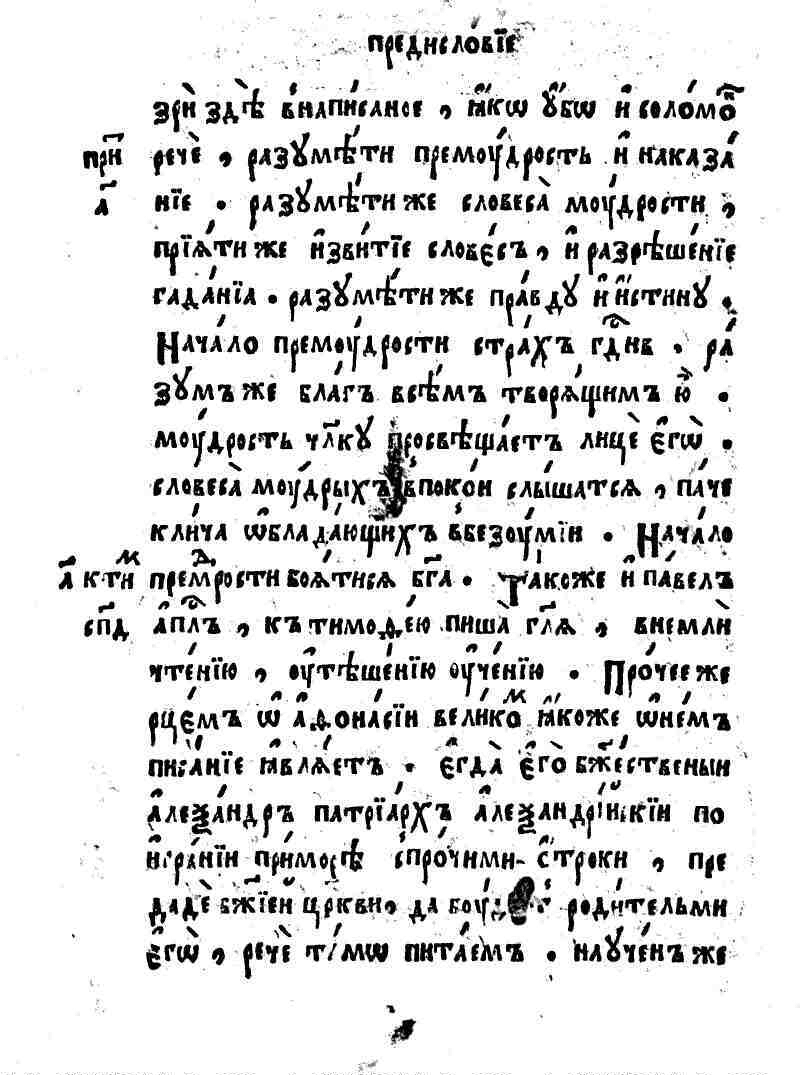 предисловїе
зрѝ здѣ̀ в̾написаное , ꙗ҆́кѡ ᲂу҆́бѡ и҆ соломѡ́н
при́т речѐ , разꙋмѣ́ти премоу́дрость и҆ наказа́
а҃ нїе . разꙋмѣ́ти же словеса̀ моу́дрости ,
прїѧ́ти же и҆зви́тїе слове́съ , и҆ разрѣше́нїе
гада́нїа . разꙋмѣ́ти же пра́вдꙋ и҆ и҆́стинꙋ .
Нача́ло премоу́дрости стра́хъ гд҇нь . ра́
зꙋмъ же бла́гъ всѣ́мъ творѧ́щимъ ю҆̀ .
моу́дрость чл҃кꙋ просвѣща́етъ лицѐ є҆гѡ̀ .
словеса̀ моу́дрыхъ в̾поко́и слы́шатсѧ , па́че
кли́ча ѡ҆блада́ющихъ в̾безоу́мїи . Нача́ло
а҃ к тим премⷣрости боѧ́тисѧ бг҃а . Та́коже и҆ па́велъ
сп҃д а҆пⷭ҇лъ , къ тимоѳе́ю пиша̀ гл҃ѧ , внемлѝ
чте́нїю , оу҆тѣше́нїю оу҆че́нїю . Про́чее же
рце́мъ ѡ҆ а҆ѳона́сїи вели́комъ ꙗ҆́коже ѡ҆ не́мъ
писа́нїе ꙗ҆влѧ́етъ . є҆гда̀ є҆го̀ бж҃е́ственыи
а҆леѯа́ндръ патрїа́рхъ а҆леѯандрі́искїи по
и҆гра́нїи примо́рсѣ с̾про́чими ѻ҆троки , пре
дадѐ бж҃їеи цр҃кви , да роди́тельми
є҆гѡ̀ , речѐ та́мѡ пита́емъ . наꙋче́нъ же